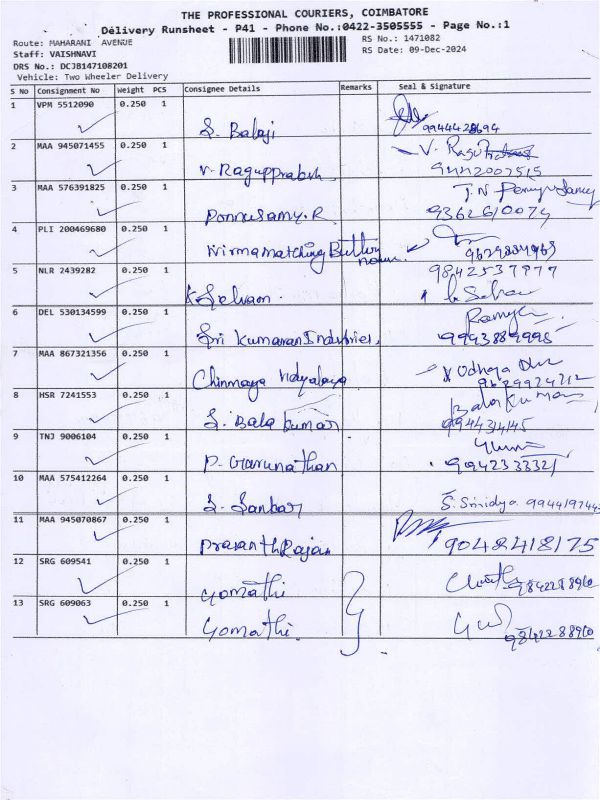 THE PROFESSIONAL COURIERS, COIMBATORE
Delivery Runsheet - P41 - Phone No.:0422-3505555 - Page No.:1
Route: MAHARANI AVENUE
RS No.: 1471082
Staff: VAISHNAVI
RS Date: 09-Dec-2024
DRS No.: DCJB147108201
Vehicle: Two Wheeler Delivery
S No Consignment No Weight PCS Consignee Details Remarks Seal & Signature
1 VPM 5512090 0.250 1
S. Balaji 9944428694
2 MAA 945071455 0.250 1
V. Ragupprabhu V. Ragu
9442007515
3 MAA 576391825 0.250 1
Ponnusamy.R 9362610074
4 PLI 200469680 0.250 1
Nirmamatching Button
5 NLR 2439282 0.250 1
K Selvam.
6 DEL 530134599 0.250 1
Sri Kumaran Industries, 9993889995
7 MAA 867321356 0.250 1
Chinmaya Vidyalaya
8 HSR 7241553 0.250 1
S. Bala kumar Balakumar
9 TNJ 9006104 0.250 1
P. Gurunathan
10 MAA 575412264 0.250 1
S. Sankar S. Srividya
11 MAA 945070867 0.250 1
Prasanth Rajan 9042418175
12 SRG 609541 0.250 1
Gomathi 9842288960
13 SRG 609063 0.250 1
Gomathi. 9842288960